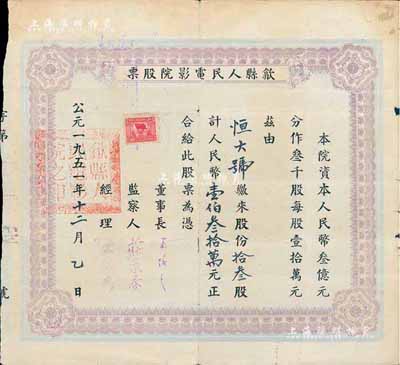 歙縣人民電影院股票
本院資本人民幣叁億元
分作叁千股每股壹拾萬元
茲由
恒大號繳來股份拾叁股
計人民幣壹佰叁拾萬元正
合給此股票為憑
董事長
監察人
經理
公元一九五一年十二月乙日
字第
號